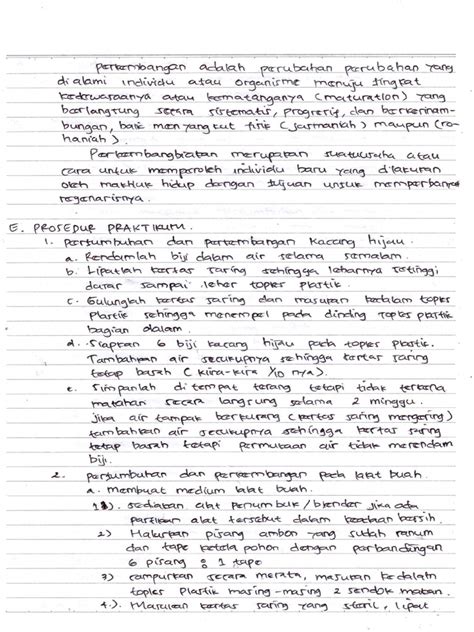 Perkembangan adalah perubahan perubahan yang
di alami individu atau organisme menuju tingkat
kedewasaanya atau kematanganya (maturation) yang
berlangsung secara sistematis, progresif, dan berkesinam-
bungan, baik menyangkut fisik (jasmaniah) maupun (ro-
haniah).
Perkembangbiakan merupakan suatu usaha atau
cara untuk memperoleh individu baru yang dilakukan
oleh makhluk hidup dengan tujuan untuk memperbanyak
regenarisnya.
E. PROSEDUR PRAKTIKUM.
1. Pertumbuhan dan perkembangan kacang hijau.
a. Rendamlah biji dalam air selama semalam.
b. Lipatlah kertas saring sehingga lebarnya setinggi
dasar sampai leher toples plastik.
c. Gulunglah kertas saring dan masukan kedalam toples
plastik sehingga menempel pada dinding toples plastik
bagian dalam.
d. Siapkan 6 biji kacang hijau pada toples plastik.
Tambahkan air secukupnya sehingga kertas saring
tetap basah (kira-kira 1/10 nya).
e. Simpanlah di tempat terang tetapi tidak terkena
matahari secara langsung selama 2 minggu.
jika air tampak berkurang (kertas saring mengering)
tambahkan air secukupnya sehingga kertas saring
tetap basah tetapi permukaan air tidak merendam
biji.
2. pertumbuhan dan perkembangan pada lalat buah.
a. membuat medium lalat buah.
1). sediakan alat penumbuk / blender jika ada
pastikan alat tersebut dalam keadaan bersih.
2) Haluskan pisang ambon yang sudah ranum
dan tape ketela pohon dengan perbandingan
6 pisang : 1 tape
3) campurkan secara merata, masukan kedalam
toples plastik masing-masing 2 sendok makan.
4.) Masukan kertas saring yang steril, lipat